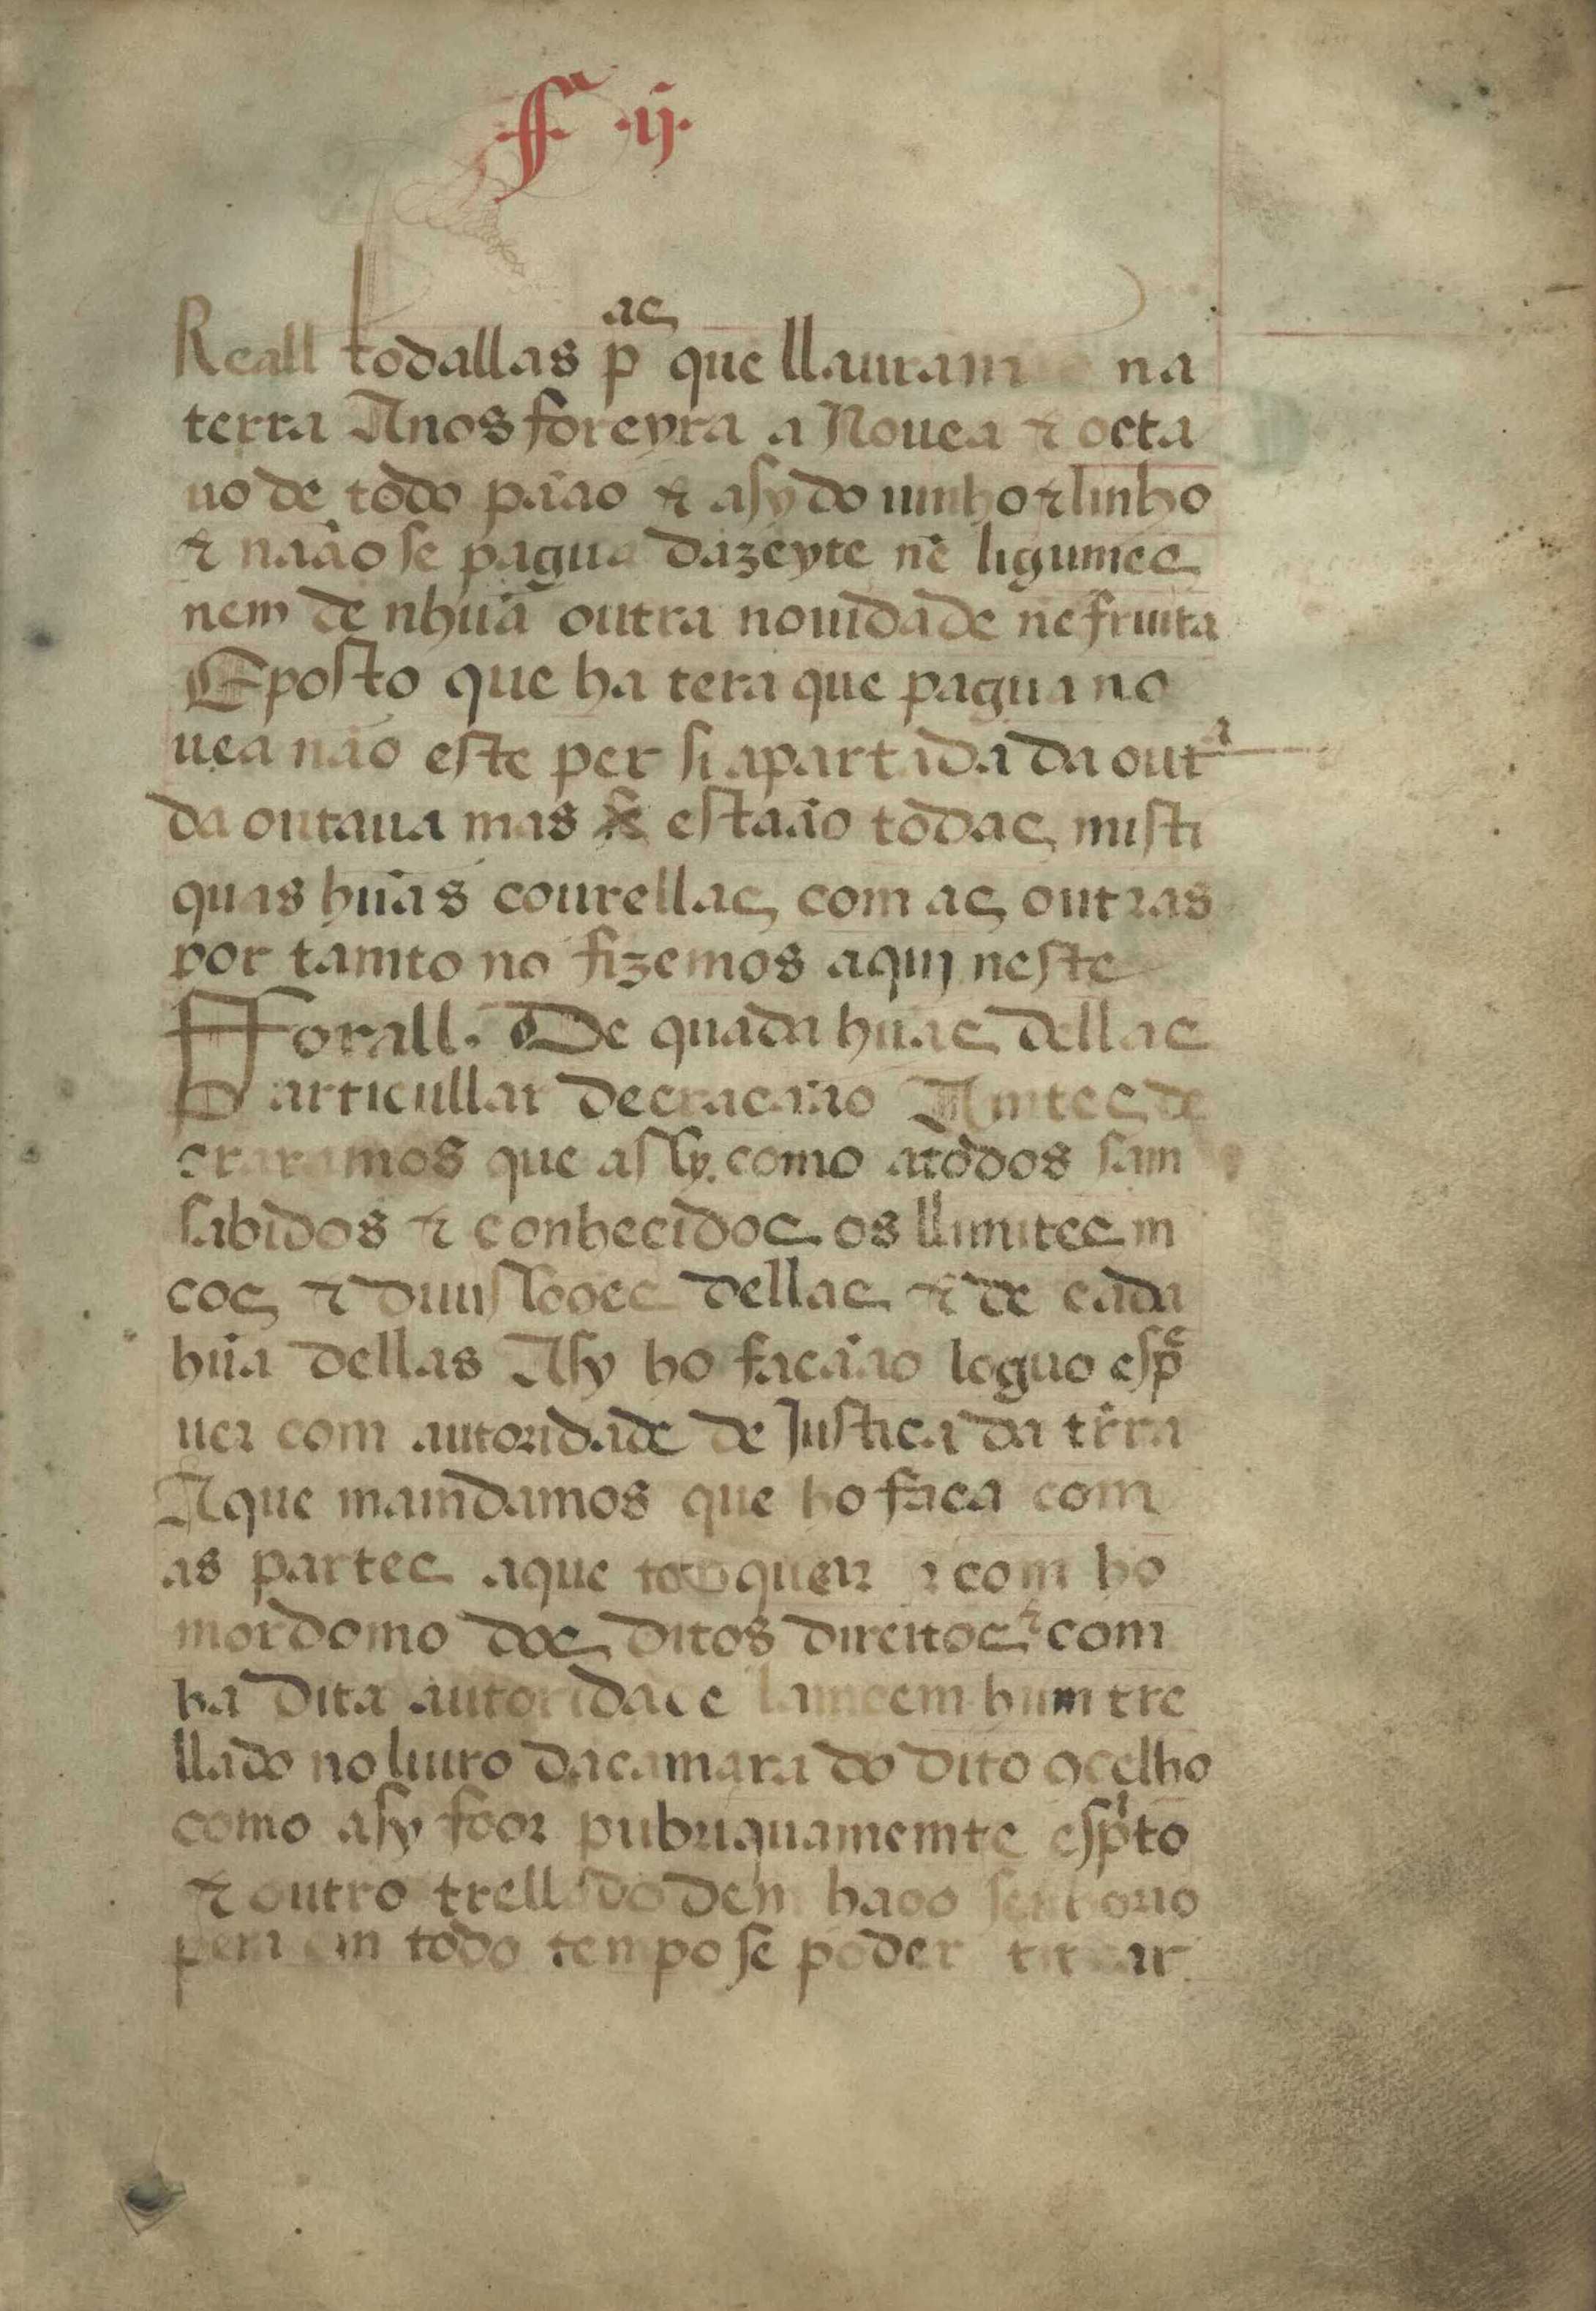 ffª .ij.
Reall todallas pᵃˢ que llauram na
terra Anos foreyra a Nouea ⁊ octa
uo de todo paão ⁊ asy do uinho ⁊ linho
⁊ naão se pagua dazeyte nẽ ligumes
nem de nhuã outra nouidade nẽ fruita
Eposto que ha tera que pagua no
uea não este per si apartida da outᵃ
da outaua mas estaão todas misti
quas huãs courellas com as outras
por tamto no fizemos aquj neste
Forall. De quada huãs dellas
Particullar decracaão Amtes de
craramos que assy como atodos sam
sabidos ⁊ conhecidos os llimites m
cos ⁊ diuissooes dellas ⁊ de cada
huã dellas Asy ho facaão loguo espᵉ
uer com autoridade de Justiça da trra
Aque mamdamos que ho faca com
as partes aque toquer ⁊ com ho
mordomo dos ditos direitos ⁊ com
ha dita autoridade lamcem hum tre
llado no liuro da camara do dito ꝯcelho
como asy foor pubriquamemte espⁱto
⁊ outro trellado dem haoo senhorio
pera em todo tempo se poder tirar